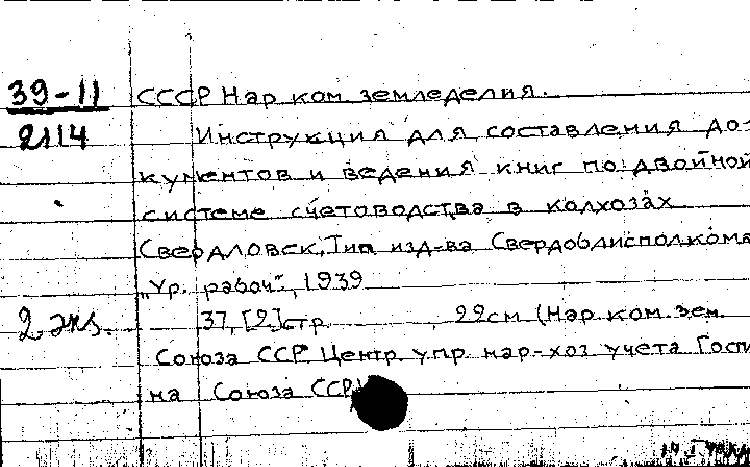 39-11 СССР Нар. ком. земледелия.
2114 Инструкция для составления до-
кументов и ведения книг по двойной
системе счетоводства в колхозах
Свердловск, Тип. изд-ва Свердоблисполкома
„Ур. рабоч.", 1939
2 экз. 37, [2] стр. , 22см (Нар. ком. зем.
Союза ССР. Центр. упр. нар-хоз учета Госпл
на Союза ССР)